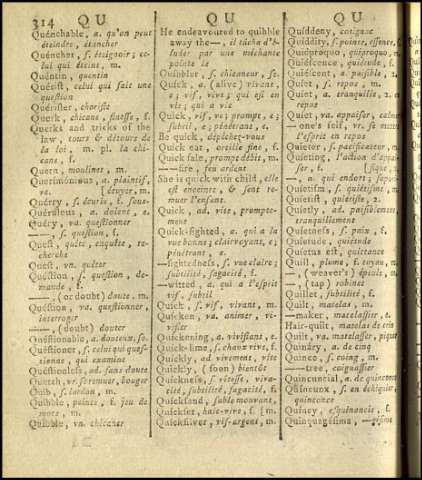 314 QU
QU
QU
Quénchable, a. qu'on peut
éteindre, étancher
Quéncher, s. éteignoir; ce-
lui qui éteint, m.
Quéntin, quentin
Quérist, celui qui fait une
question
Quérister, choriste
Querk, chicane, finesse, f.
Querks and tricks of the
law, tours & détours de
la loi, m. pl. la chi-
cane, f.
Quern, moulinet, m.
Querimónious, a. plaintif,
va. [étuyer, m.
Quérry, s. écurie, f. sous-
Quérulous, a. dolent, e.
Quéry, va. questionner
—, s. question, f.
Quest, quête, enquête, re-
cherche
Quest, vn. quêter
Quéstion, s. question, de-
mande, f.
—, (or doubt) doute, m.
Quéstion, va. questionner,
interroger
—, (doubt) douter
Quéstionable, a. douteux, se.
Quéstioner, s. celui qui ques-
tionne, qui examine
Quéstionless, ad. sans doute
Quetch, vr. se remuer, bouger
Quib, s. lardon, m.
Quibble, pointe, f. jeu de
mots, m.
Quibble, vn. chicaner
He endeavoured to quibble
away the—, il tâcha d'é-
luder par une méchante
pointe le
Quibbler, s. chicaneur, se.
Quick, a. (alive) vivant,
e; vif, vive; qui est en
vie; qui a vie
Quick, vif, ve; prompt, e;
subtil, e; pénétrant, e.
Be quick, dépêchez-vous
Quick ear, oreille fine, f.
Quick sale, prompt débit, m.
—fire, feu ardent
She is quick with child, elle
est enceinte, & sent re-
muer l'enfant.
Quick, ad. vîte, prompte-
ment
Quick-sighted, a. qui a la
vue bonne; clairvoyant, e;
pénétrant, e.
—sightedness, s. vue claire;
subtilité, sagacité, f.
—witted, a. qui a l'esprit
vif, subtil
Quick, s. vif, vivant, m.
Quicken, va. animer, vi-
vifier
Quickening, a. vivifiant, e.
Quick-lime, s. chaux vive, f.
Quickly, ad. vivement, vîte
Quickly, (soon) bientôt
Quickness, s. vîtesse, viva-
cité, subtilité, sagacité, f.
Quicksand, sable mouvant,
Quickset, haie-vive, f. [m.
Quicksilver, vif-argent, m.
Quiddeny, cotignac
Quiddity, s. pointe, essence, f.
Quidproquo, quiproquo, m.
Quiéscence, quiétude, f.
Quiéscent, a. paisible, 2.
Quiet, s. repos, m.
Quiet, a. tranquille, 2. en
repos
Quiet, va. appaiser, calmer
—one's self, vr. se mettre
d'esprit en repos
Quieter, s. pacificateur, m.
Quieting, l'action d'appai-
ser, f. [sique
—, a. qui endort; soper-
Quietism, s. quiétisme, m.
Quietist, quiétiste, 2.
Quietly, ad. paisiblement,
tranquillement
Quietness, s. paix, f.
Quietude, quiétude
Quietus est, quittance
Quill, plume, f. tuyau, m.
—, (weaver's) époulin, m.
—, (tap) robinet
Quillet, subtilité, f.
Quilt, matelas, m.
—maker, matelassier, m.
Hair-quilt, matelas de crin
Quilt, va. matelasser, piquer
Quínary, a. de cinq
Quince, s. coing, m.
—tree, coignassier
Quincuncial, a. de quinconce
Quincunx, s. en échiquier,
quinconce
Quincy, esquinancie, f.
Quinquagésima, —gésime